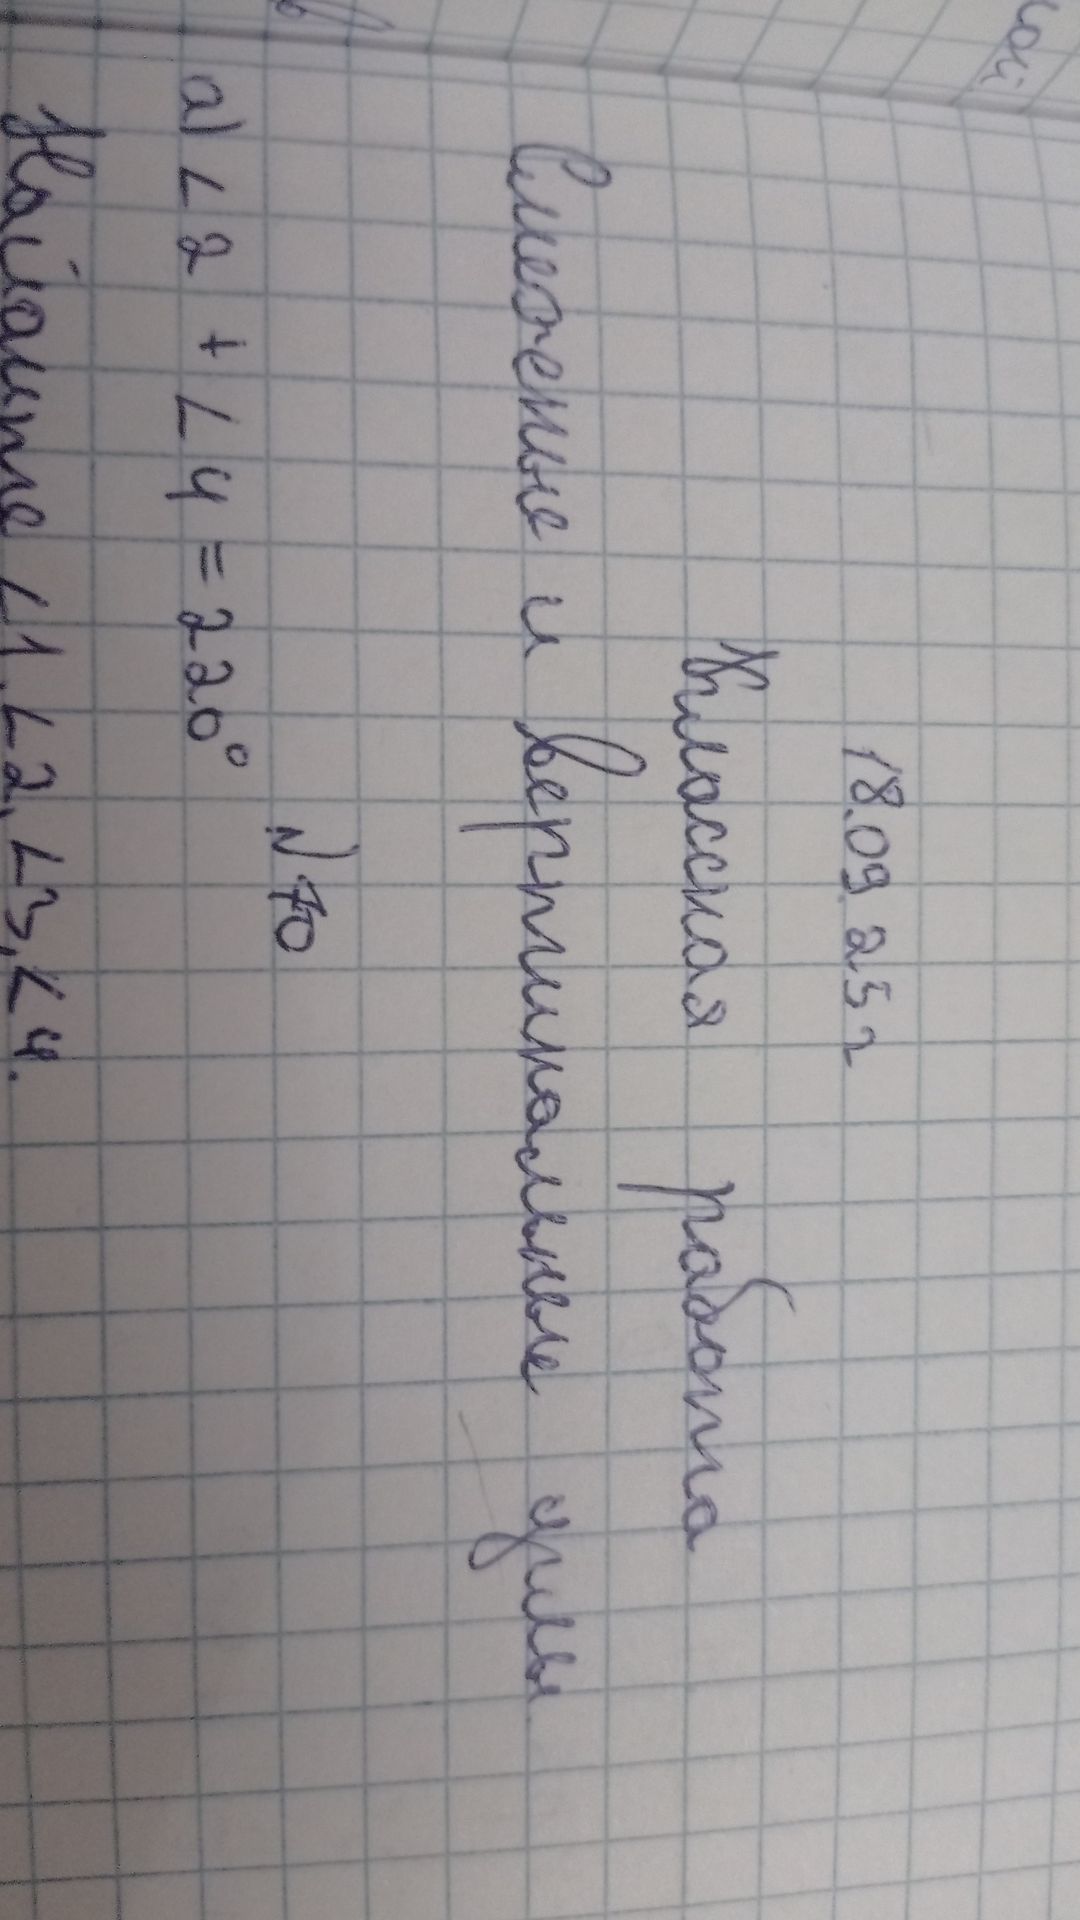 18.09.25 г
Классная работа
Смежные и вертикальные углы
N 70
а) ∠2 + ∠4 = 220°
Найдите ∠1, ∠2, ∠3, ∠4.